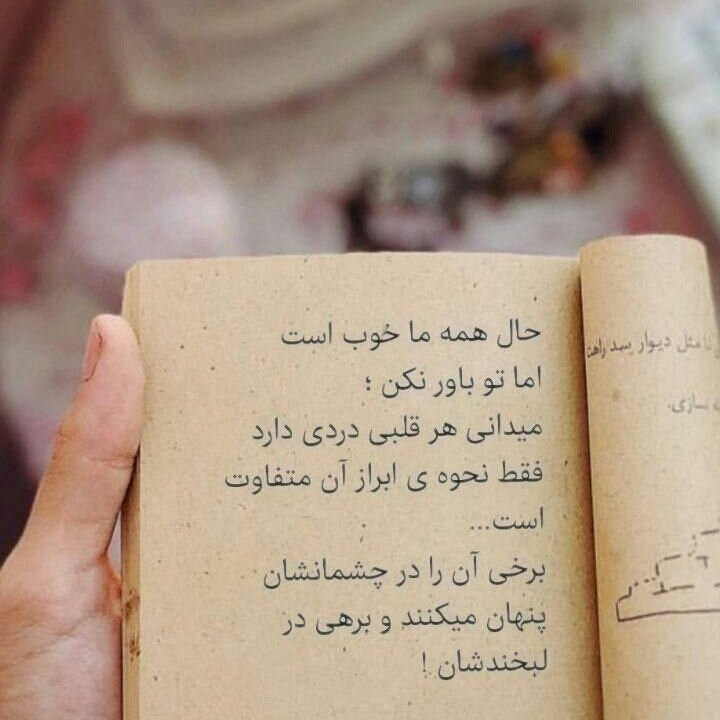 حال همه ما خوب است
اما تو باور نکن ؛
میدانی هر قلبی دردی دارد
فقط نحوه ی ابراز آن متفاوت
است...
برخی آن را در چشمانشان
پنهان میکنند و برهی در
لبخندشان !
مثل دیوار سد راهت
سازی.